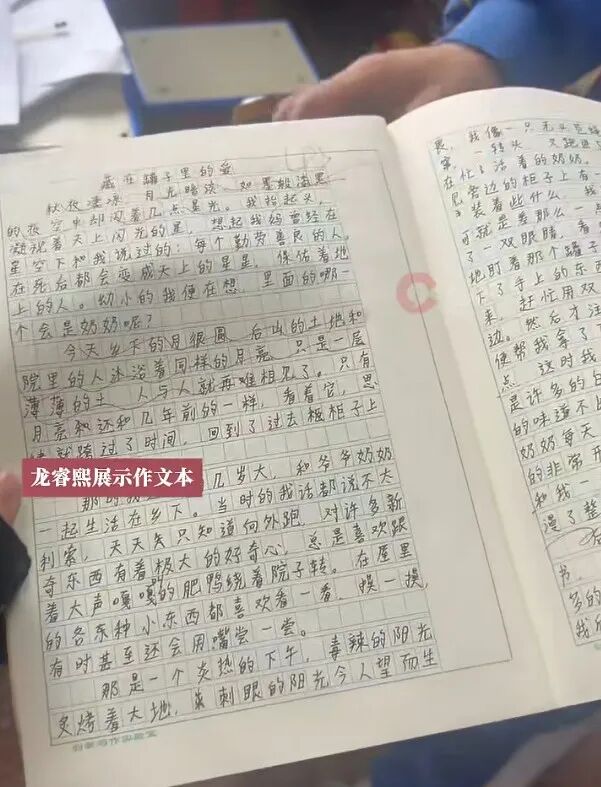 藏在罐子里的爱
秋夜漆凉,月光暗淡、如墨般漆黑
的夜空中却闪着几点星光。我抬起头,
凝视着天上闪光的星,想起我妈曾经在
星空下和我说过的:每个勤劳善良的人
在死后都会变成天上的星星,保佑着地
上的人。幼小的我便在想,里面的哪一
个会是奶奶呢?
今天乡下的月很圆,后山的土地和
院里的人沐浴着同样的月亮,只是一层
薄薄的土,人与人就再难相见了。只有
月亮和还和几年前的一样,看着它,思
绪就跨过了时间,回到了过去柜子上
龙睿熙展示作文本
几岁大,和爷爷奶奶
一起生活在乡下。当时的我话都说不大
利索,天天只知道向外跑,对许多新
奇东西有着极大的好奇心,总是喜欢跟
着大声嘎嘎的肥鸭绕着院子转。在屋里
的各种小东西都喜欢看一看,摸一摸,
有时甚至还会用嘴尝一尝。
那是一个炎热的下午,毒辣的阳光
炙烤着大地,刺眼的阳光令人望而生
畏,我像一只无头苍蝇
一转头,又跑进
在忙活着的奶奶。
旁边的柜子上有一
装着些什么,我
可就是差那么一点
了一双眼睛,看
地盯着那个罐子
下了手上的东西
来,赶忙用双
边。然后才注
便帮我拿了下
点,这时我
是许多的白
的味道不
奶奶每天
的非常
和我一
漫了整
书,
多的
我